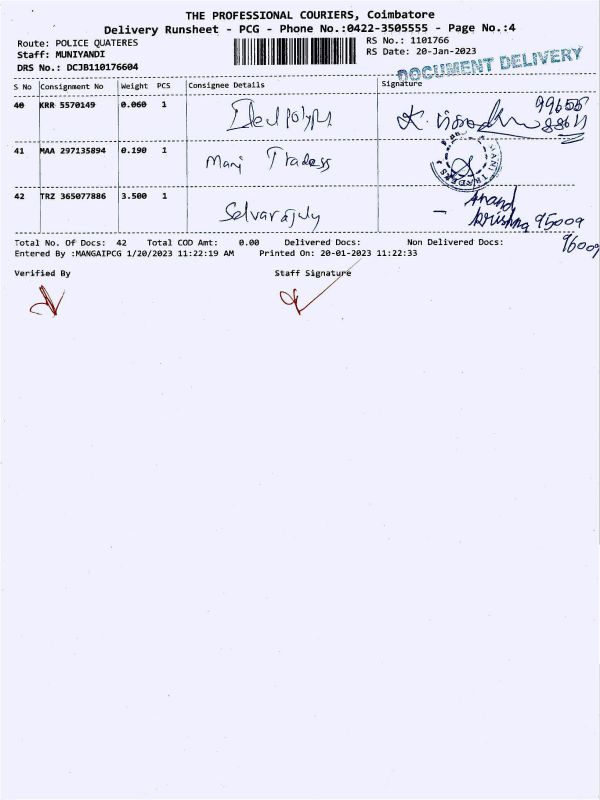 THE PROFESSIONAL COURIERS, Coimbatore
Delivery Runsheet - PCG - Phone No.:0422-3505555 - Page No.:4
Route: POLICE QUATERES
RS No.: 1101766
Staff: MUNIYANDI
RS Date: 20-Jan-2023
DRS No.: DCJB110176604
DOCUMENT DELIVERY
S No Consignment No Weight PCS Consignee Details Signature
40 KRR 5570149 0.060 1 99655
41 MAA 297135894 0.190 1 Mani Traders
MANI TRADERS
42 TRZ 365077886 3.500 1 Selvarajuly Anand
Krishna 95009
96009
Total No. Of Docs: 42 Total COD Amt: 0.00 Delivered Docs: Non Delivered Docs:
Entered By :MANGAIPCG 1/20/2023 11:22:19 AM Printed On: 20-01-2023 11:22:33
Verified By Staff Signature